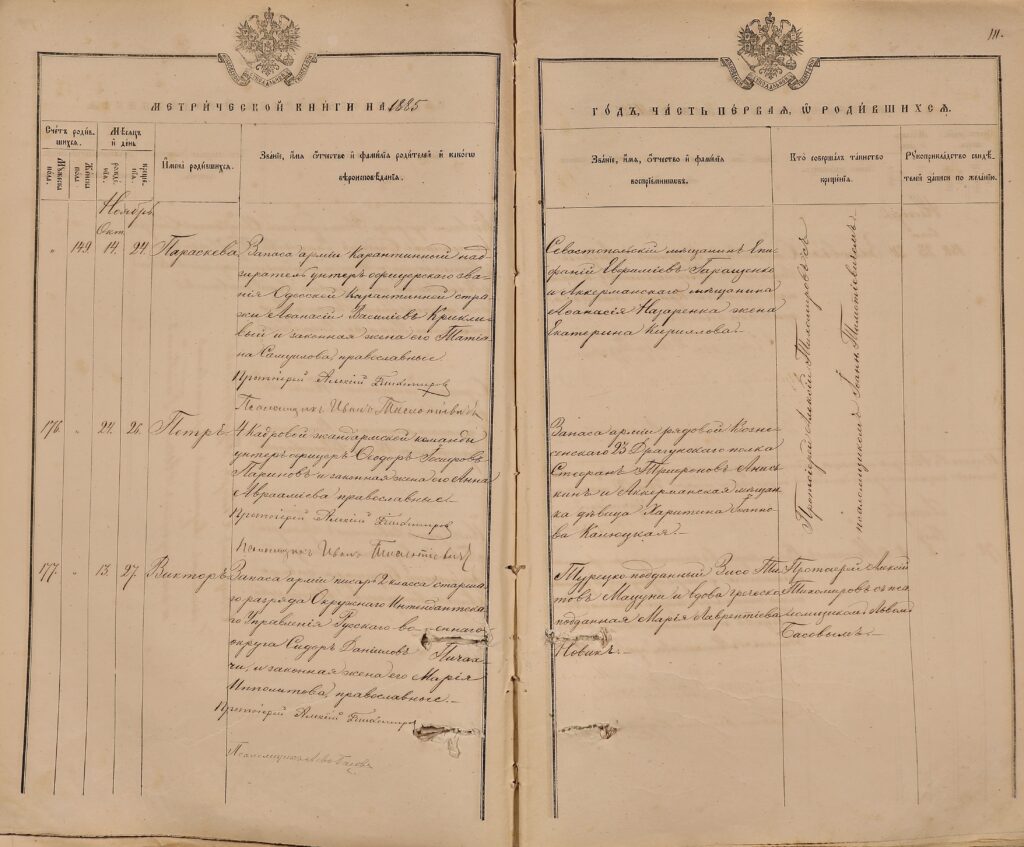 111.
МЕТРИ́ЧЕСКОЙ КНИ́ГИ НА 1885
ГО́ДЪ, ЧА́СТЬ ПЕ́РВАЯ, Ѡ РОДИ́ВШИХСЯ.
Счетъ родив-
шихся.
Мужеска пола.
Женска пола.
Мѣсяцъ и день
рожде-
нія.
креще-
нія.
Имена родившихся.
Званіе, имя отчество и фамилія родителей и какого
вѣроисповѣданія.
Званіе, имя, отчество и фамилія
воспріемниковъ.
Кто совершалъ таинство
крещенія.
Рукоприкладство свидѣ-
телей записи по желанію.
Ноябрь
Окт.
" 149. 14. 24. Параскева
Запаса арміи Карантинной над-
зиратель унтеръ офицерскаго зва-
нія Одесской Карантинной стра-
жи Аѳанасій Васильевъ Крикли-
вый и законная жена его Татіа-
на Самуилова, православные
Протоіерей Алексій Тихомировъ
Псаломщикъ Иванъ
Севастопольскій мѣщанинъ Епи-
фаній Евфиміевъ Геращенко
и Аккерманскаго мѣщанина
Аѳанасія Назаренка жена
Екатерина Кириллова.
Протоіерей Алексій Тихомировъ съ
псаломщикомъ Іоанномъ
176. " 24. 26. Петръ
4 Кадровой жандармской команды
унтеръ офицеръ Ѳеодоръ
и законная жена его Анна
Авраамiева православные.
Протоіерей Алексій Тихомировъ
Псаломщикъ Иванъ
Запаса арміи рядовой Возне-
сенскаго 23 Драгунскаго полка
Стефанъ Трифоновъ Аники-
кинъ и Аккерманская мѣщан-
ка дѣвица Харитина Іоанно-
ва
177. " 13. 27. Викторъ
Запаса арміи писарь 2 класса старша-
го разряда Окружнаго Интендантска-
го Управленія военнаго
округа Сидоръ Даніиловъ
и законная жена его Марія
Ипполитова, православные.
Протоіерей Алексій Тихомировъ
Псаломщикъ Левъ Басовъ
Турецко подданный
и вдова греческо
подданная Марія Лаврентіева
Новикъ.
Протоіерей Алексій
Тихомировъ съ пса-
ломщикомъ Львомъ
Басовымъ.